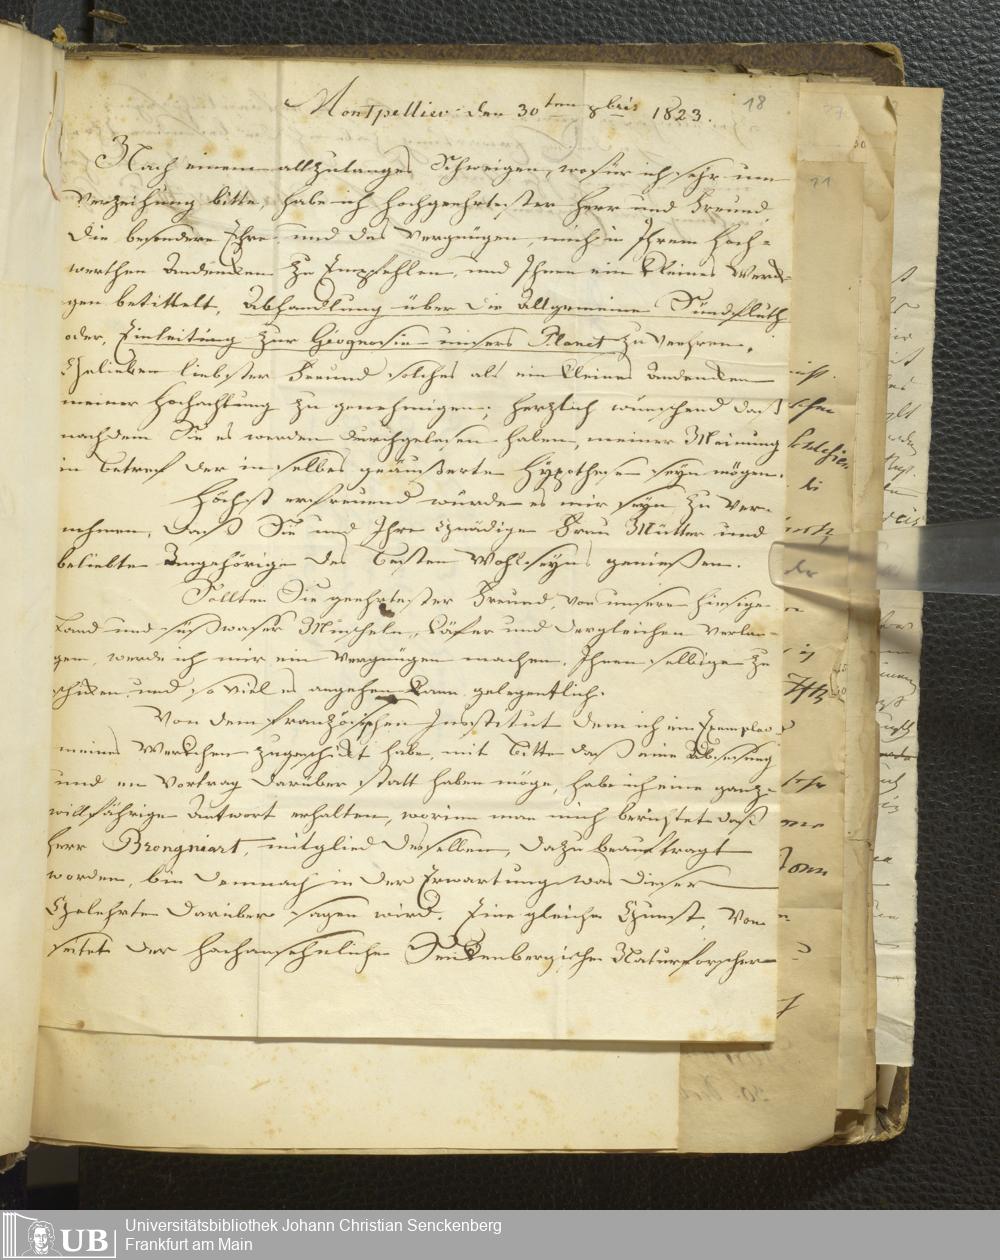 Montpellier den 30ten 8bris 1823.
18
Nach einem allzulanges Schweigen, wofür ich sehr um
Verzeihung bitte, habe ich hochgeehrtester Herr und Freund,
die besondere Ehre und das Vergnügen, mich in Ihrem hoch-
werthen Andenken zu Empfehlen, und Ihnen ein kleines Werk-
gen betittelt, Abhandlung über die Allgemeine Sündfluth
oder, Einleitung zur Geognosie unsers Planet zu verehren,
Gelieben liebster Freund solches als ein kleines Andenken
meiner Hochachtung zu genehmigen; herzlich wünschend daß
nachdem Sie es werden durchgelesen haben, meiner Meinung
in Betref der in selbes geäußerte Hypothese seyn mögen.
Höchst erfreuend würde es mir seyn, zu ver-
nehmen, daß Sie und Ihre Gnädige Frau Mutter und
beliebte Angehörige des Besten Wohlseyns genießen.
Sollten Sie geehrtester Freund, von unsern hiesige
Land und süßwaser Muscheln, Käfer und dergleichen verlan-
gen, werde ich mir ein Vergnügen machen, Ihnen selbige zu
schicken, und so viel es angehen kann, gelegentlich.
Von dem französischen Institut dem ich ein Exemplar
meines Werkchen zugeschickt habe, mit Bitte daß eine Ablesung
und en Vortrag darüber statt haben möge, habe ich eine ganz
willfährige Antwort erhalten, worinn man mich berichtet daß
Herr Brongniart, mitglied desselben, dazu beauftragt
worden, bin demnach in der Erwartung was dieser
Gelehrte darüber sagen wird. Eine gleiche Gunst, von
seitet der hochansehnliche Senkenbergische Naturforscher
UB
Universitätsbibliothek Johann Christian Senckenberg
Frankfurt am Main